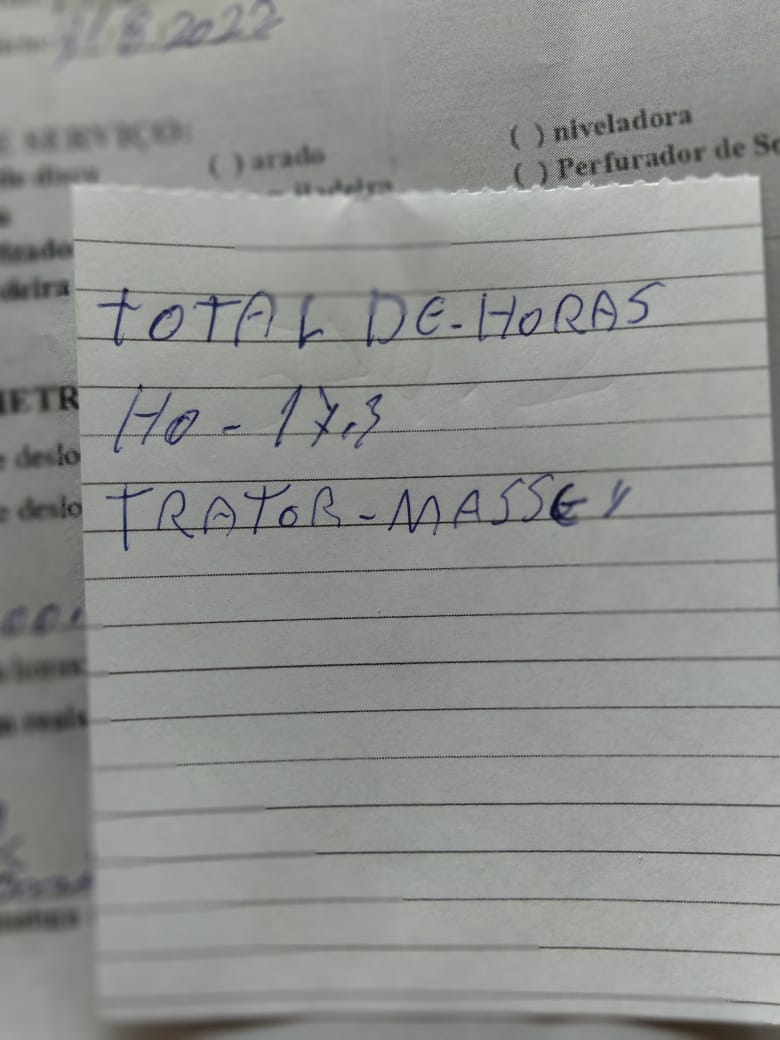 2022
E SERVIÇO:
( ) arado
( ) niveladora
( ) Perfurador de So
TOTAL DE-HORAS
HO - 17,3
TRATOR-MASSEY
e deslo
e deslo